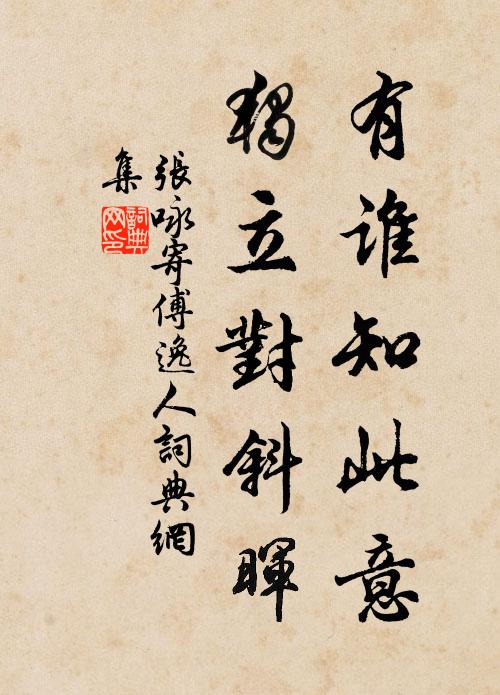 有誰知此意
獨立對斜暉
張咏寄傅逸人詞典網
集
詞典
网印